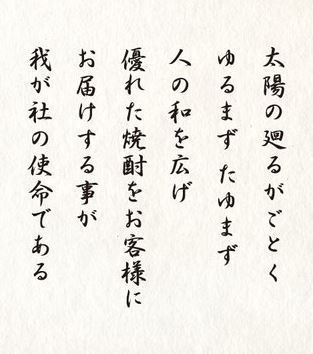 太陽の廻るがごとく
ゆるまず たゆまず
人の和を広げ
優れた焼酎をお客様に
お届けする事が
我が社の使命である